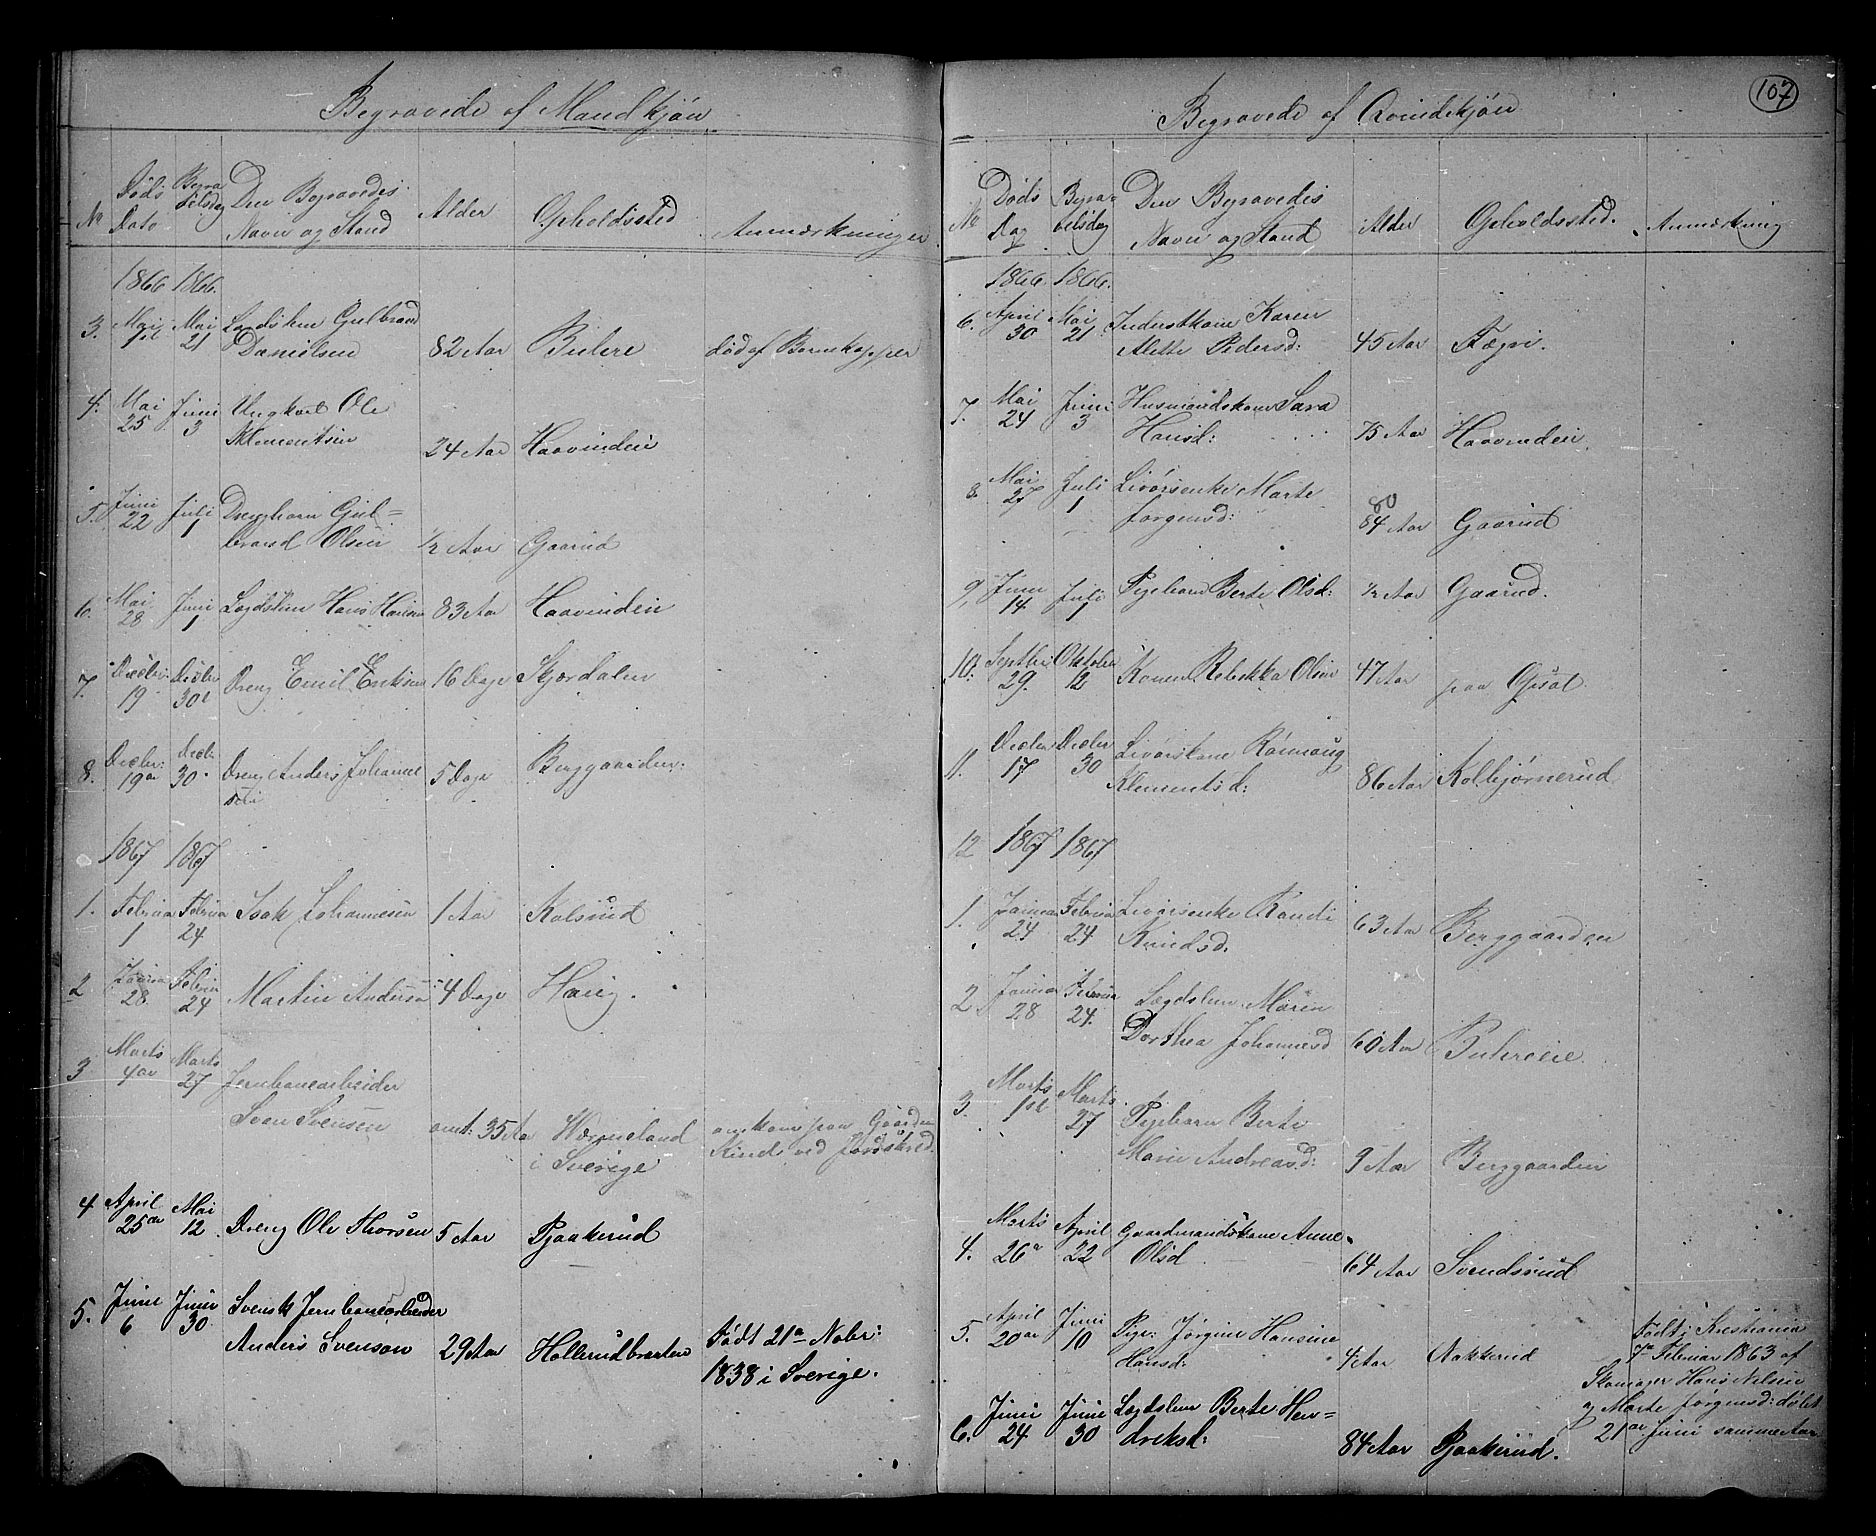 107
Begravede af Mandkjøn
No Døds Dato Begravelsdag Den Begravedes Navn og Stand Alder Opholdssted Anmærkninger
1866 1866.
3. Mai 1ste Mai 21 Lægdslem Gulbrand
Danielsen 82 Aar Bulere død af Børnekopper
4. Mai 25 Juni 3 Ungkarl Ole
Klementsen 24 Aar Haavindeie
5. Juni 22 Juli 1 Drengbarn Gul=
brand Olsen 1/2 Aar Gaarud
6. Mai 28 Juni 1 Lægdslem Hans Hansen 83 Aar Haavindeie
7. Decbr: 19 Decbr 30 Dreng Emil Eriksen 16 Dage Skjærdalen
8. Decbr: 19de Decbr 30 Dreng Anders Johanne
sen 5 Dage Berggaarden.
1867 1867
1. Februar 1 Februar 24 Isak Johannesen 1 Aar Kolsrud
2 Januar 28. Februar 24 Martin Andersen 4 Dage Haug.
3 Marts 4de Marts 27 Jernbanearbeider
Sven Svensen omt: 35 Aar Wermeland omkom paa Gaarden
i Sverige ved Jordskred.
4 April 25de Mai 12 Dreng Ole Thorsen 5 Aar Pjaakerud
5. Juni 6 Juni 30 Svensk Jernbanearbeider
Anders Svenson 29 Aar Hollerudbraaten Født 21de Nobr:
1838 i Sverige.
Begravede af Qvindekjøn
No Døds Dag Begravelsdag Den Begravedes Navn og Stand Alder Opholdssted. Anmærkning
1866. 1866.
6. April 30 Mai 21. Inderstkone Karen
Alette Pedersd: 45 Aar Fægri.
7. Mai 24 Juni 3 Husmandskone Sara
Hansd: 75 Aar Haavindeie.
8. Mai 27 Juli 1 Livørsenke Marte
Jørgensd: 80 84 Aar Gaarud
9. Juni 14 Juli 1 Pigebarn Berte Olsd: 1/2 Aar Gaarud.
10. Septbr 29. Oktober 12 Konen Rebekka Olsen 47 Aar paa Opsal
11. Decbr 17 Decbr 30 Livørskone Rønnaug
Klementsd: 86 Aar Kolbjørnerud
12 1867 1867
1. Januar 24 Februar 24 Livørsenke Randi
Knudsd. 63 Aar Berggaarden
2 Januar 28 Februar 24. Lægdslem Maren
Dorthea Johannesd 60 Aar Bulereeie
3. Marts 1ste Marts 27 Pigebarn Berte
Marie Andreasd: 9 Aar Berggaarden
4. Marts 26de April 22 Gaardmandskone Anne
Olsd 64 Aar Svendsrud
5. April 20de Juni 10 Pige: Jørgine Hansine
Hansd: 4 Aar Nakkerud Født i Kristiania
7de Februar 1863 af
Skomager Hans Nilsen
og Marte Jørgensd: døbt
21de Juni samme Aar
6. Juni 24 Juni 30 Lægdslem Berte Hen=
dreksd: 84 Aar Pjaakerud.